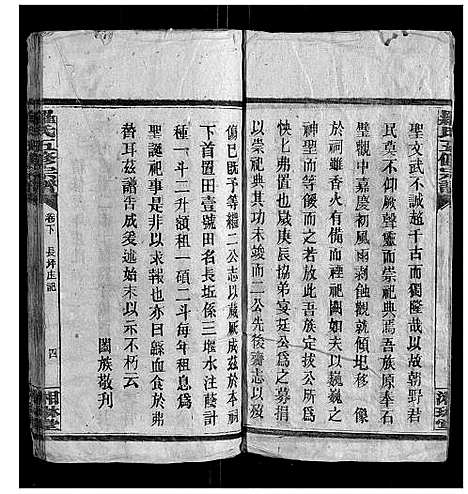 聖文武不誠超千古而獨隆哉以故朝野君
民莫不仰厥聲靈而崇祀典焉吾族原奉石
璧觀中嘉慶初風雨剥蝕觀就傾圮移 像
於祠雖香火有備而禋祀闕如夫以巍巍之
神聖而等餒若敖可乎哉吾族定拔公所爲
怏上弗置也歲庚辰協弟宴珽公爲之募捐
以崇祀典其功未竣而二公先後齎志以歿
傷已旣予等繼二公志以蕆厥成茲於本祠
下首置田一號田名長坵係三堰水注蔭計
種一斗二升額租一碩二斗每年租息爲
聖誕祀事是非以求報也亦曰緜血食於弗
替耳茲譜告成爰述始末以示不朽云
闔族敬刋
羅氏五修宗譜
卷下
長坪庄記
四